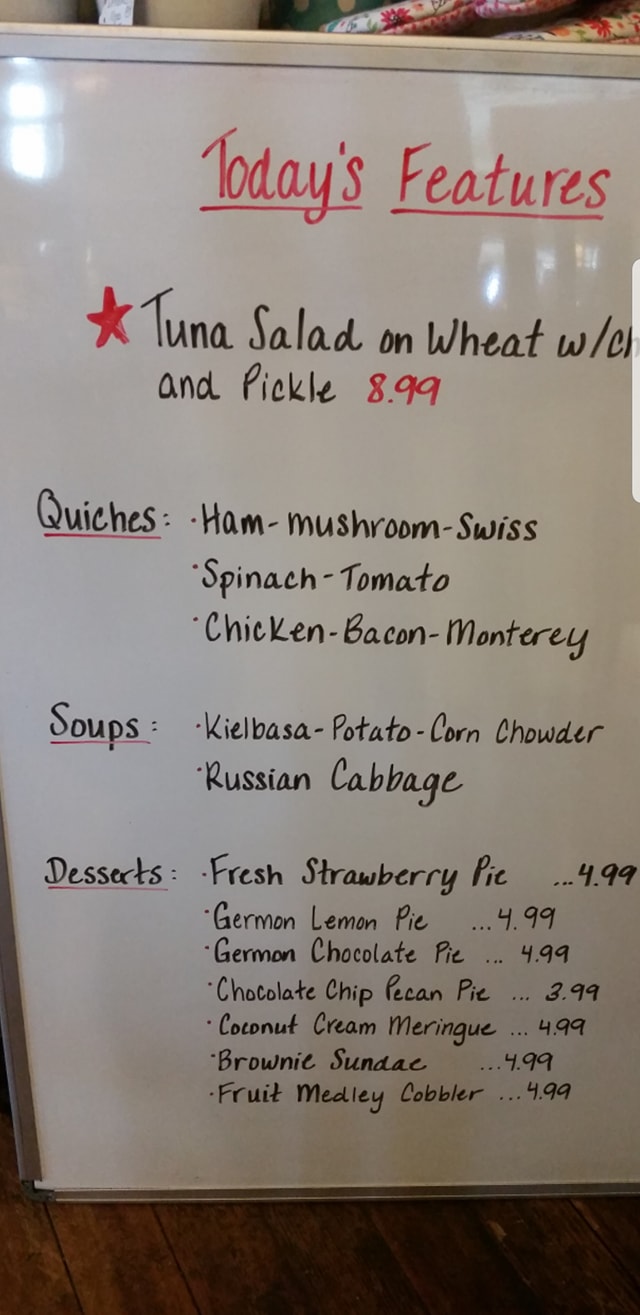 Today's Features
★ Tuna Salad on Wheat w/ch
and Pickle 8.99
Quiches: ·Ham-mushroom-Swiss
·Spinach-Tomato
·Chicken-Bacon-Monterey
Soups: ·Kielbasa-Potato-Corn Chowder
·Russian Cabbage
Desserts: ·Fresh Strawberry Pie ...4.99
·Germon Lemon Pie ...4.99
·Germon Chocolate Pie ... 4.99
·Chocolate Chip Pecan Pie ... 3.99
·Coconut Cream Meringue ... 4.99
·Brownie Sundae ...4.99
·Fruit Medley Cobbler ...4.99